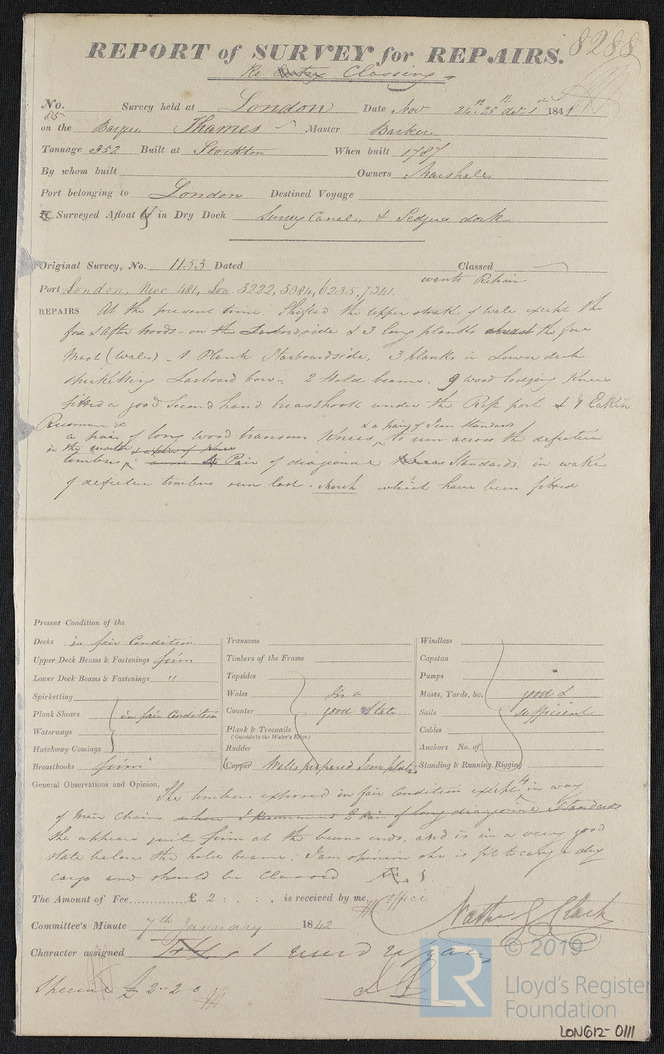 8288
REPORT of SURVEY for REPAIRS.
Re Classing
No. Survey held at London Date Nov 24th 25th Oct 1st 1841
on the Barque Thames Master Barker
Tonnage 352 Built at Stockton When built 1787
By whom built Owners Marshall
Port belonging to London Destined Voyage
Surveyed Afloat & in Dry Dock Surrey Canal, & dock
Original Survey, No. 1153 Dated Classed
wants Repair
Port London, Nwc 481, Lon 3222, 5084, 6235, 7241.
REPAIRS At the present time Shifted the upper strake of wale except the
fore & after hoods on the side & 3 long planks the fore
Mast (wales) 1 Plank Starboardside, 3 planks in Lower deck
Spirketting Larboard bow. 2 Hold beams. 9 wood lodging knees
fitted a good second hand breasthook under the port &
Recommend & a pair of Iron Standards
a pair of long wood transom knees, to run across the defective
in the
timbers, Pair of diagional Standards, in wake
of defective timbers which have been fitted
Present Condition of the
Decks in fair Condition
Upper Deck Beams & Fastenings firm
Lower Deck Beams & Fastenings "
Spirketting
Plank Shears in fair Condition
Waterways
Hatchway Comings
Breasthooks firm
Transoms
Timbers of the Frame
Topsides
Wales In a
Counter good State
Plank & Treenails
(Outside to the Water's Edge)
Rudder
Copper Well repaired
Windlass
Capstan
Pumps
Masts, Yards, &c. good &
Sails sufficient
Cables
Anchors No. of
Standing & Running Rigging
General Observations and Opinion, The timbers exposed in fair Condition except 4 in way
of Main Chains where I Recommend 2 Pair of long diagoinal Standards
She appears quit firm at the beams ends, and is in a very good
state below the hold beams. I am opinion she is fit to carry a dry
cargo and should be Classed
The Amount of Fee........... £ 2 : . : . is received by me, Office
Committee's Minute 7th January 1842
Character assigned
Special £ 2-2-0
© 2019
LR
Lloyd's Register
Foundation
LON612-0111